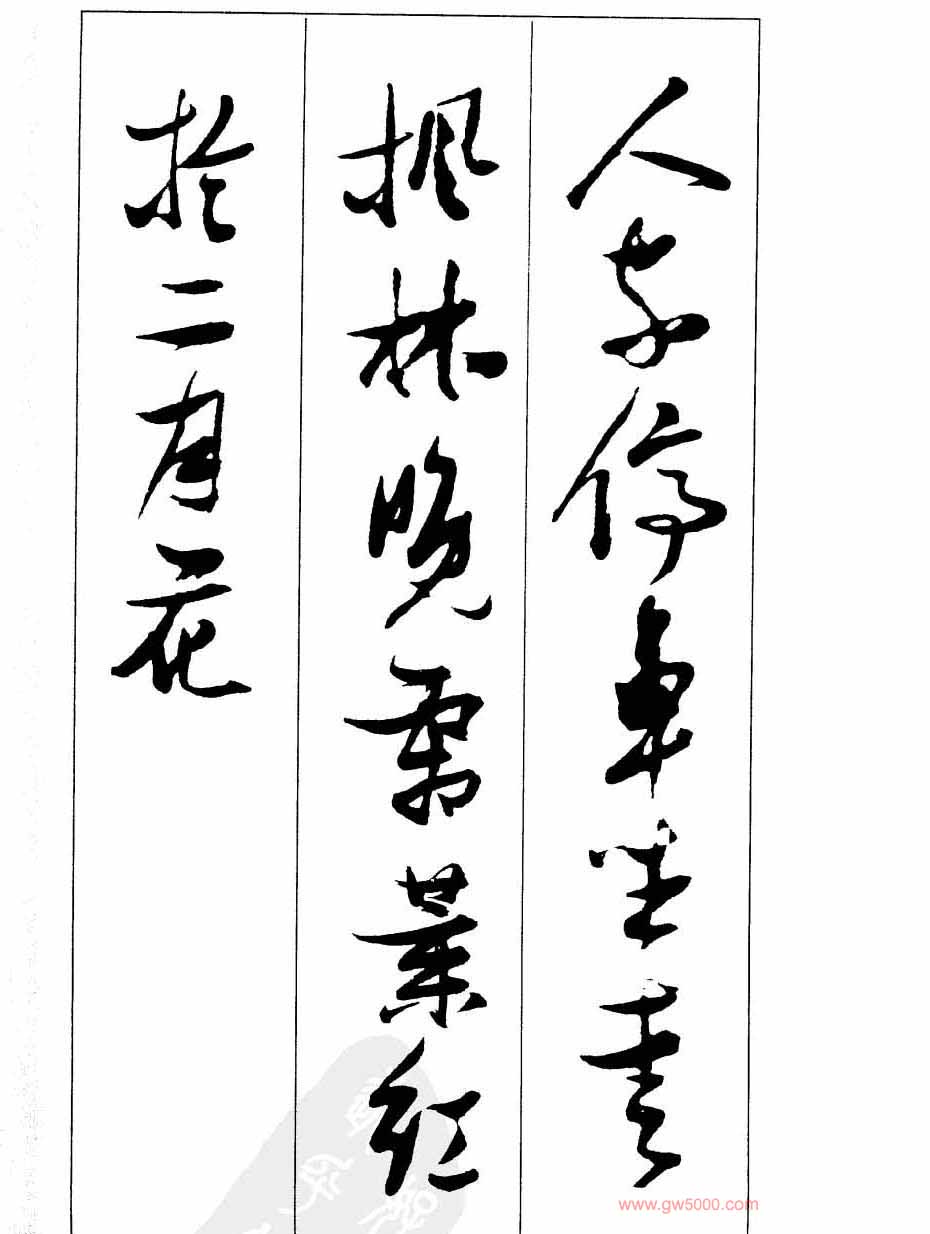 人家停車坐愛
楓林晚霜葉紅
於二月花
www.gw5000.com